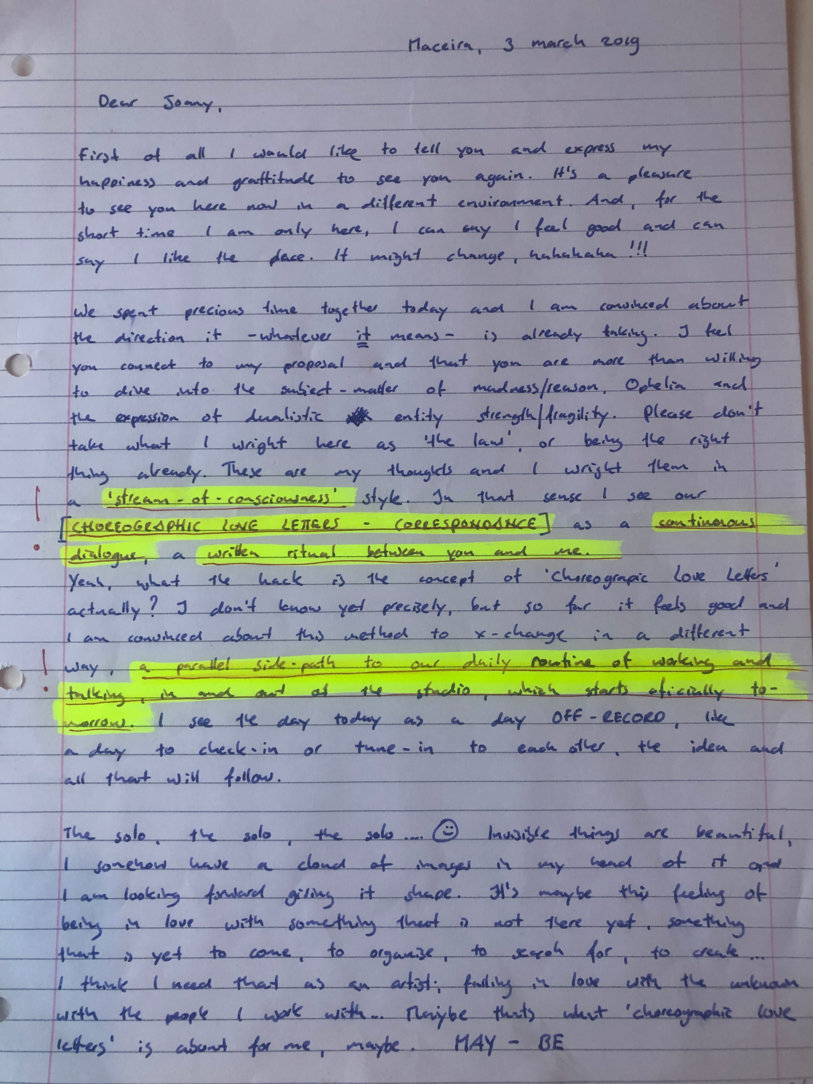 Maceira, 3 march 2019
Dear Jonny,
First of all I would like to tell you and express my
happiness and grattitude to see you again. It's a pleasure
to see you here now in a different environment. And, for the
short time I am only here, I can say I feel good and can
say I like the place. It might change, hahahaha !!!
We spent precious time together today and I am convinced about
the direction it -whatever it means- is already taking. I feel
you connect to my proposal and that you are more than willing
to dive into the subject-matter of madness/reason, Ophelia and
the expression of dualistic entity strength/fragility. Please don't
take what I wright here as 'the law', or being the right
thing already. These are my thoughts and I wright them in
a 'stream-of-consciousness' style. In that sense I see our
[CHOREOGRAPHIC LOVE LETTERS - CORRESPONDANCE] as a continuous
dialogue, a written ritual between you and me.
Yeah, what the hack is the concept of 'Choreograpic Love Letters'
actually? I don't know yet precisely, but so far it feels good and
I am convinced about this method to x-change in a different
way, a parallel side-path to our daily routine of working and
talking, in and out of the studio, which starts oficially to-
morrow. I see the day today as a day OFF-RECORD, like
a day to check-in or tune-in to each other, the idea and
all that will follow.
The solo, the solo, the solo .... ☺ Invisible things are beautiful,
I somehow have a cloud of images in my head of it and
I am looking forward giving it shape. It's maybe this feeling of
being in love with something that is not there yet, something
that is yet to come, to organise, to search for, to create...
I think I need that as an artist; falling in love with the unknown
with the people I work with... Maybe thats what 'choreographic love
letters' is about for me, maybe. MAY - BE